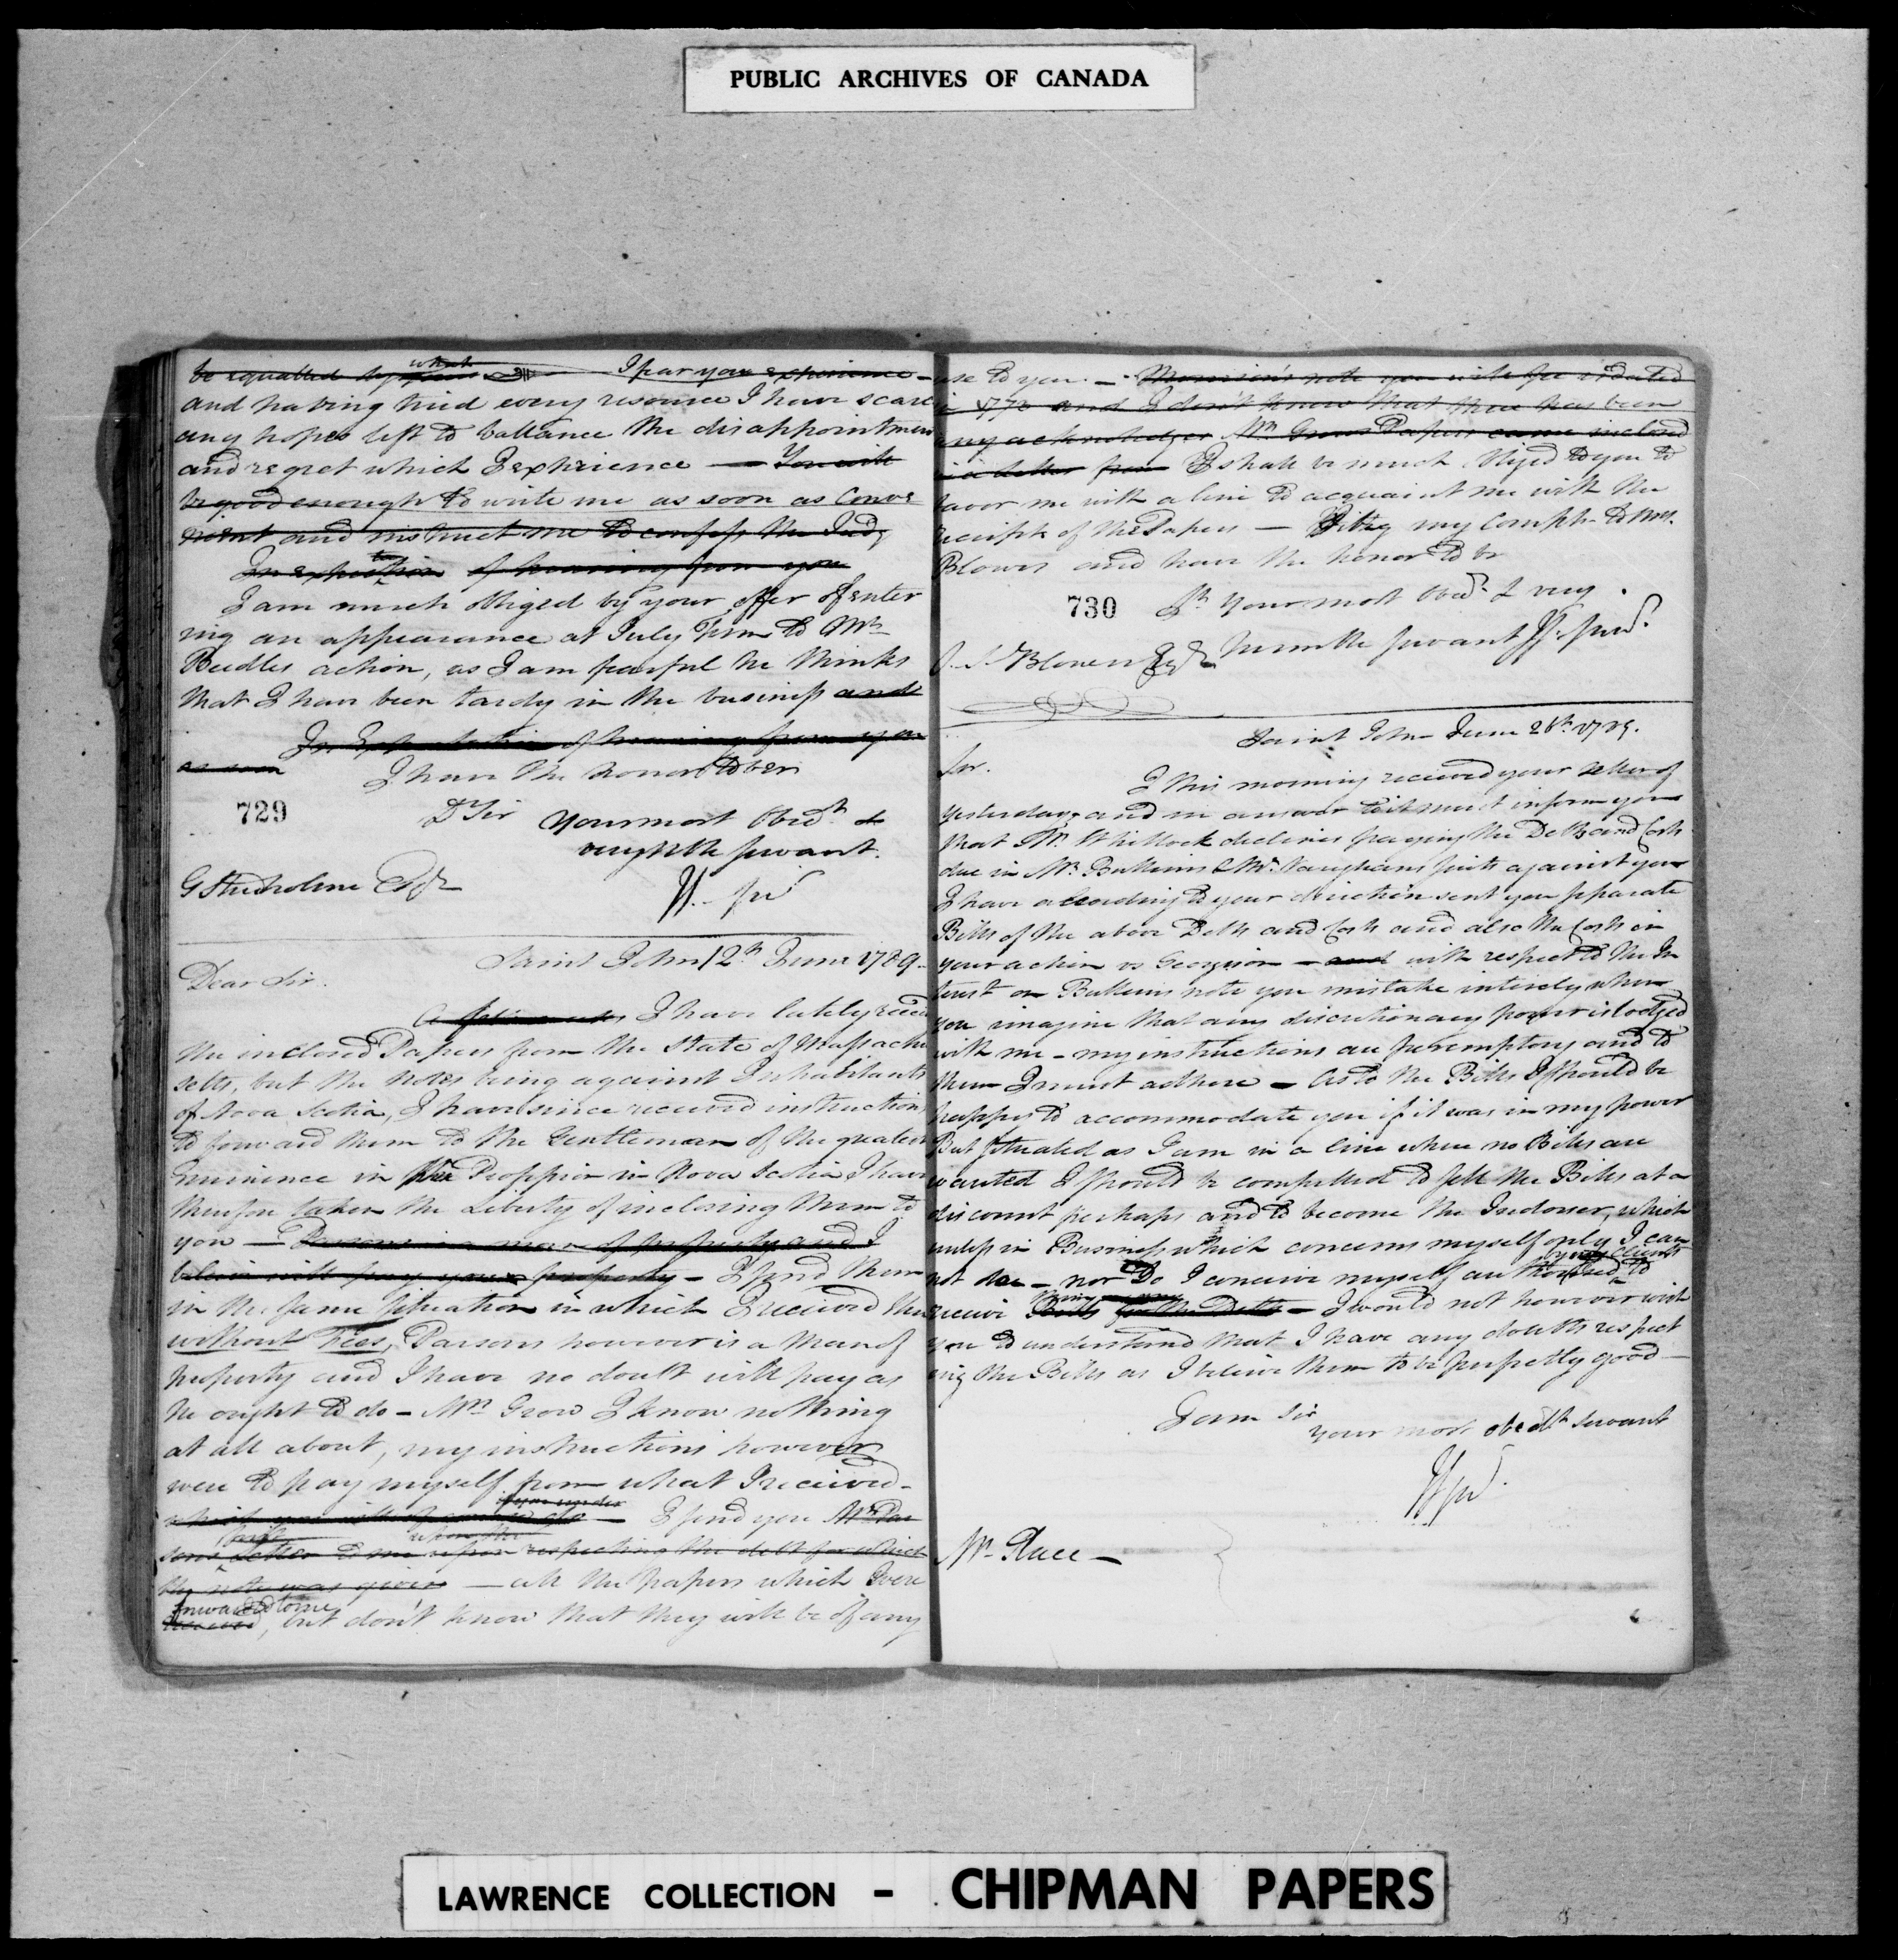 PUBLIC ARCHIVES OF CANADA
be equalled by what I fear you experience
and having tried every resource I have scarce
any hopes left to ballance the disappointmen
and regret which I experience — You will
be good enough to write me as soon as Conve
nient and instruct me to confess the Judg
In expectation of hearing from you
I am much obliged by your offer of enter
ing an appearance at July Term to Mr
Beedles action, as I am fearful he thinks
that I have been tardy in the business and
In Expectation of hearing from you
as soon I have the honor to be
729 D Sir Your most Obedt &
very Hble servant.
G Studholme Esqr
Saint John 12th June 1789.
Dear Sir.
I have lately recd
the inclosed Papers from the State of Massachu
setts, but the Notes being against Inhabitants
of Nova Scotia, I have since received instructions
to forward them to the Gentleman of the greatest
Eminence in the Profession in Nova Scotia I have
therefore taken the Liberty of inclosing them to
you — Parsons is a man of property and I
believe will pay your property — I send them
in the same situation in which I received them
without Fees, Parsons however is a Man of
property and I have no doubt will pay as
he ought to do — Mr Grow I know nothing
at all about, my instructions however
were to pay myself from what I received —
which you will of course do — I send you Mr Par
sons Letter to me upon respecting the debt for which
the note was given — all the papers which were
forwarded to me
received, but don't know that they will be of any
use to you. — Morrison's note you will see is dated
in 177 and I don't know that there has been
any acknowledger Mr Grows Papers came inclosed
in a letter from I shall be much obliged to you to
favor me with a line to acquaint me with the
receipt of the Papers — I beg my Complts to Mrs.
Blowers and have the honor to be
730 Sr Your most Obedt & very
S. S. Blowers Esqr humble servant
Saint John June 26th 1789.
Sir.
I this morning received your letter of
yesterday, and in answer to it must inform you
that Mr Whitlock declines paying the Debts and Costs
due in Mr. Bulkins & Mr. Vaughans suits against you
I have according to your direction sent you separate
Bills of the above Debts and Costs and also the Costs in
your action vs — and with respect to the In
terest on Bulkins note you mistake intirely when
you imagine that any discretionary power is lodged
with me — my instructions are peremptory and to
them I must adhere — As to the Bills I should be
happy to accommodate you if it was in my power
But situated as I am in a line where no Bills are
wanted I should be compelled to sell the Bills at a
discount perhaps and to become the Indorser, which
unless in Business which concerns myself only I can
by my Clients
not do — nor Do I conceive myself authorised to
receive Bills for the Debts — I would not however wish
you to understand that I have any doubts respect
ing the Bills as I believe them to be perfectly good —
I am Sir
your most obedt servant
Mr Place —
LAWRENCE COLLECTION - CHIPMAN PAPERS